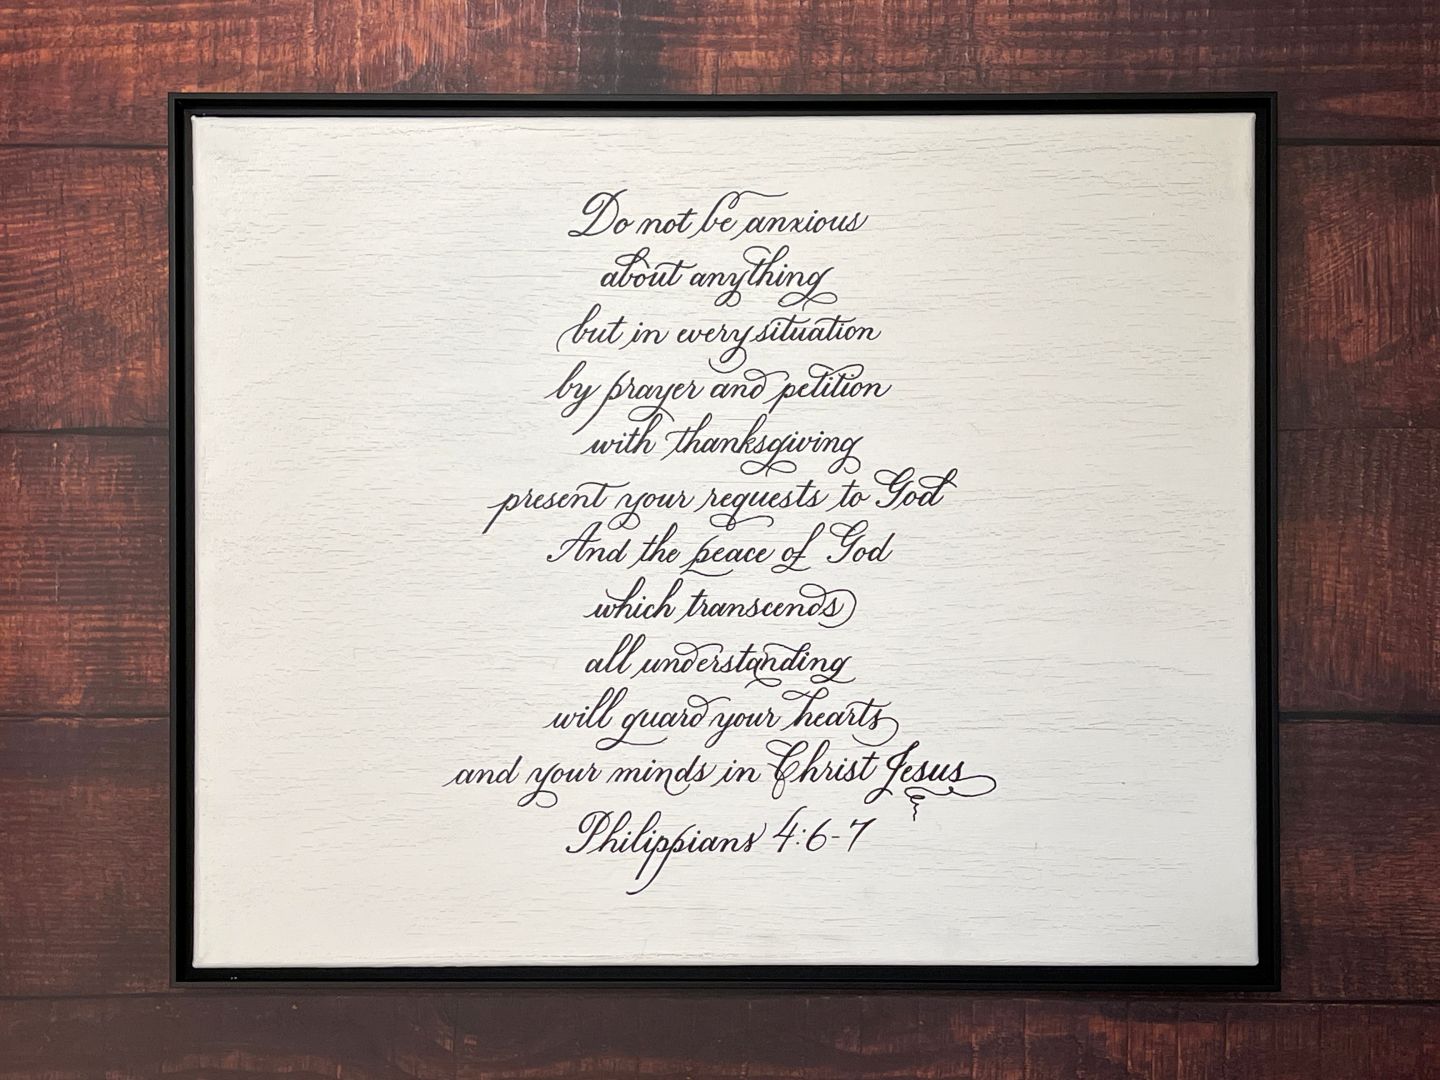 Do not be anxious
about anything
but in every situation
by prayer and petition
with thanksgiving
present your requests to God
And the peace of God
which transcends
all understanding
will guard your hearts
and your minds in Christ Jesus
Philippians 4:6-7